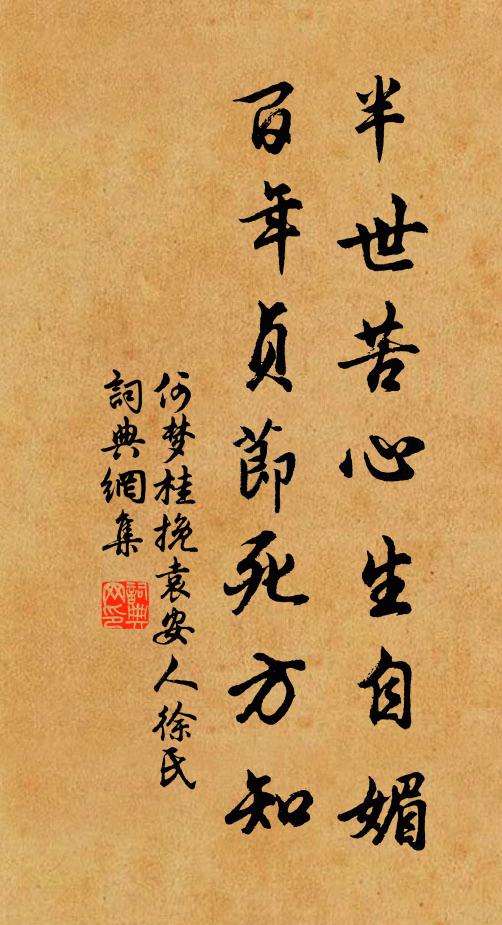 半世苦心生自媚
百年贞節死方知
何梦桂挽袁安人徐氏
詞典網集
詞典
网印